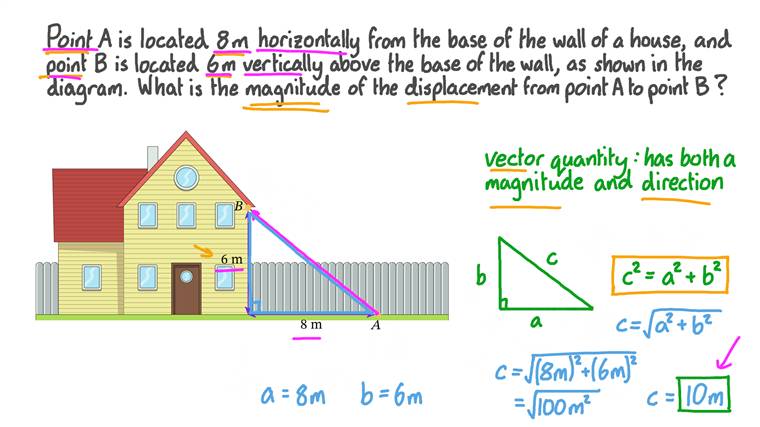 Point A is located 8m horizontally from the base of the wall of a house, and
point B is located 6m vertically above the base of the wall, as shown in the
diagram. What is the magnitude of the displacement from point A to point B?
vector quantity: has both a
magnitude and direction
B
6 m
8 m
A
b
c
a
c² = a² + b²
c = √a² + b²
c = √(8m)² + (6m)²
= √100m²
c = 10m
a = 8m b = 6m